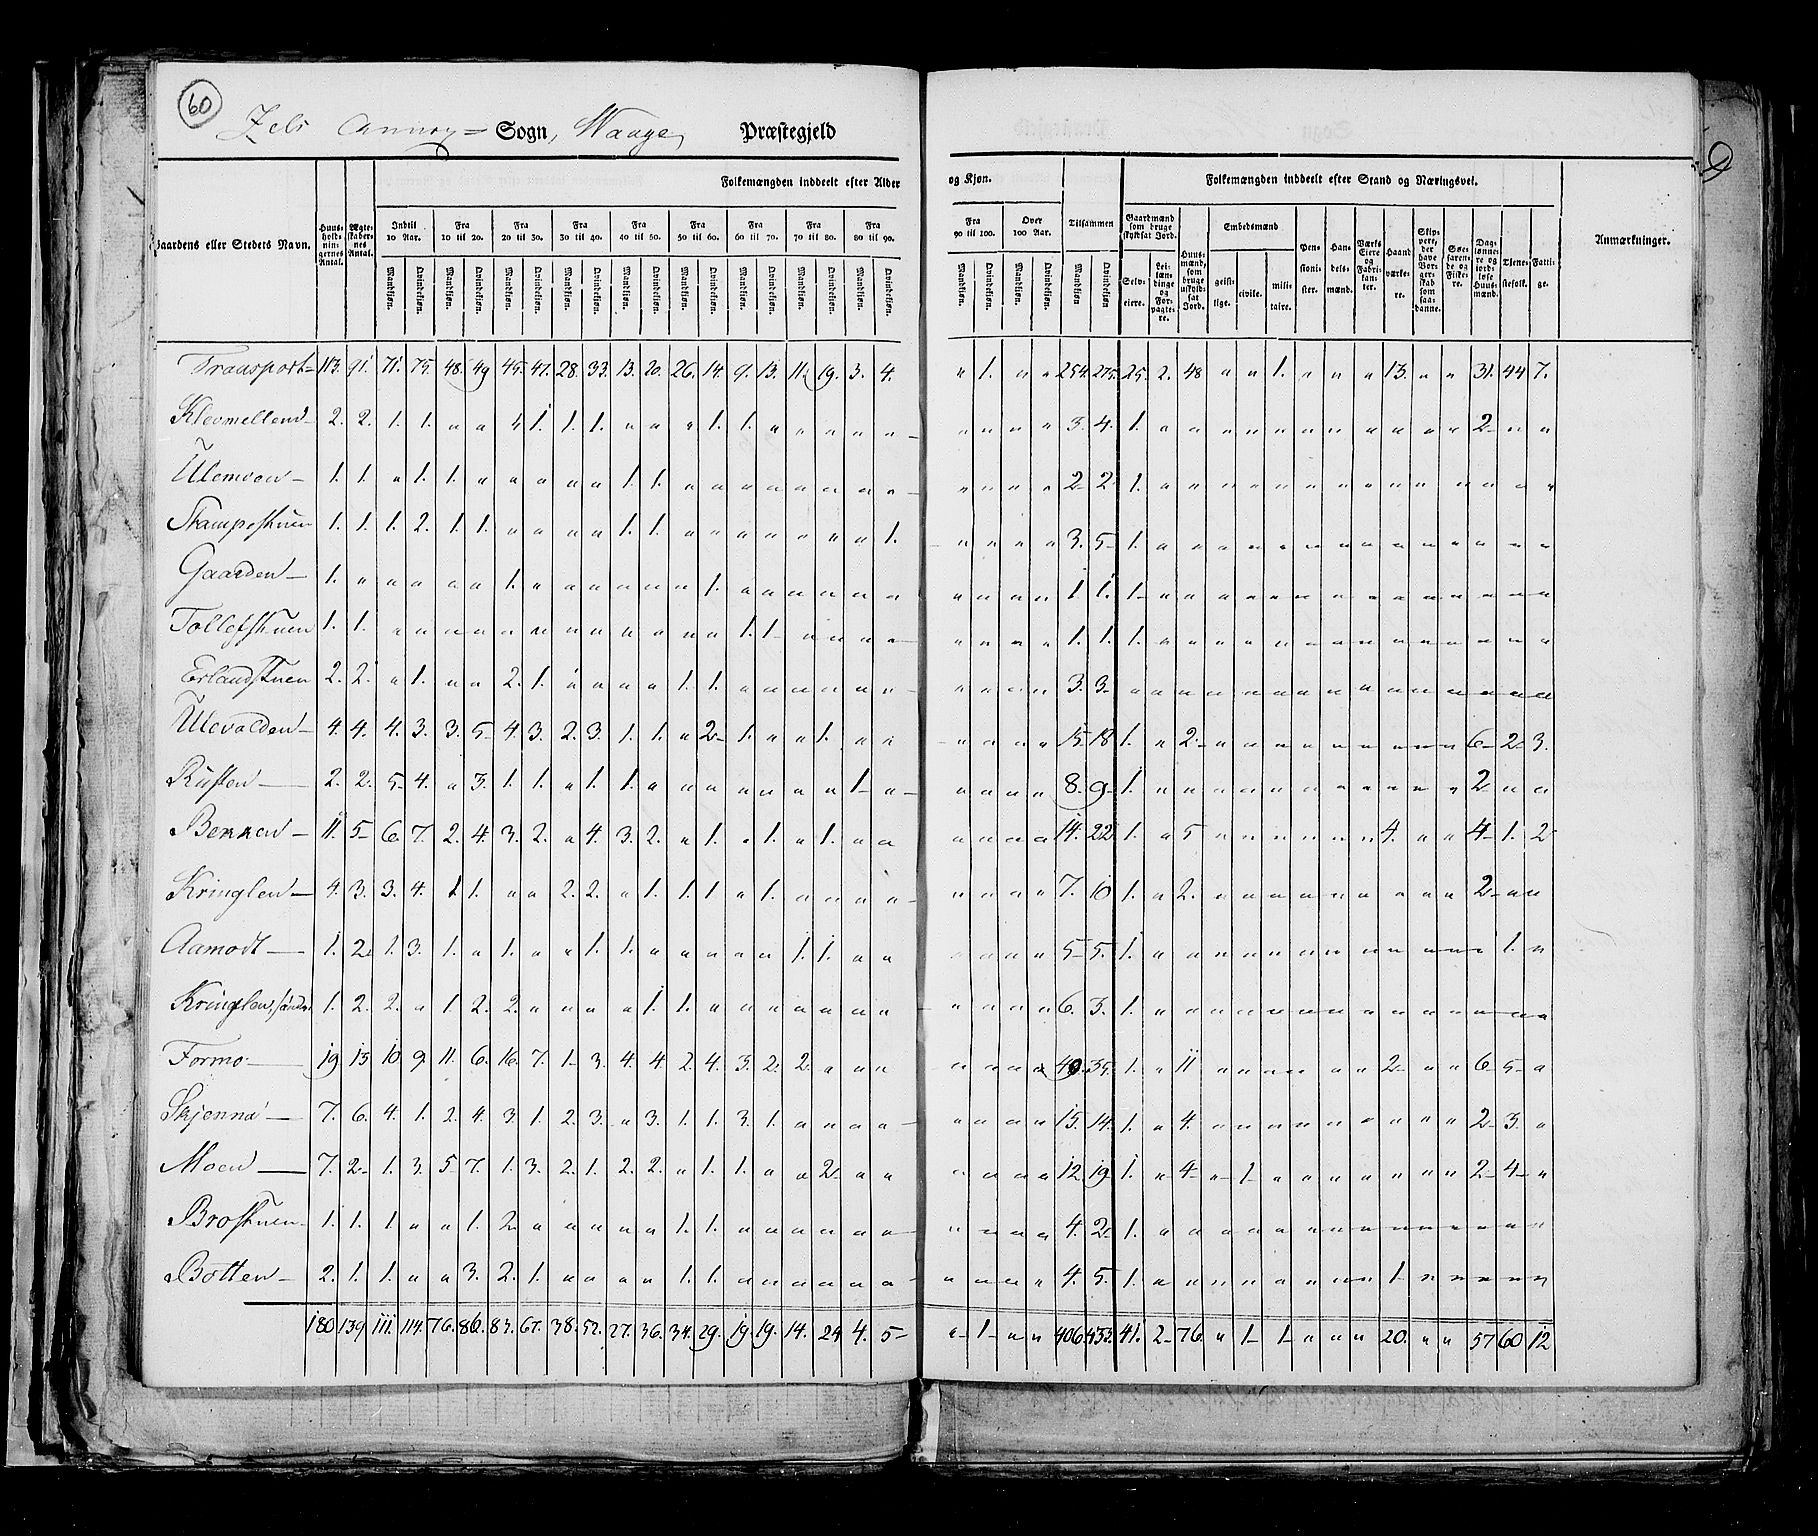 60
Annex = Sogn, Waage Præstegjeld
Folkemængden inddeelt efter Alder og Kjøn. Folkemængden inddeelt efter Stand og Næringsvei.
Gaardens eller Stedets Navn. Huusholdningernes Antal. Ægteskabernes Antal. Indtil 10 Aar. Fra 10 til 20. Fra 20 til 30. Fra 30 til 40. Fra 40 til 50. Fra 50 til 60. Fra 60 til 70. Fra 70 til 80. Fra 80 til 90. Fra 90 til 100. Over 100 Aar. Tilsammen Gaardmænd som bruge skyldsat Jord. Huusmænd, som bruge uskyldsat Jord. Embedsmænd Pensionister. Handelsmænd. Værks Eiere og Fabrikanter. Haandværkere. Skippere, der have Borgerskab som saadanne. Søefarende og Fiskere. Daglønnere og jordløse Huusmænd. Tjenestefolk. Fattige. Anmærkninger.
Mandkjøn. Qvindekjøn. Mandkjøn. Qvindekjøn. Mandkjøn. Qvindekjøn. Mandkjøn. Qvindekjøn. Mandkjøn. Qvindekjøn. Mandkjøn. Qvindekjøn. Mandkjøn. Qvindekjøn. Mandkjøn. Qvindekjøn. Mandkjøn. Qvindekjøn. Mandkjøn. Qvindekjøn. Mandkjøn. Qvindekjøn. Mandkjøn Qvindekjøn Selveiere. Leilændinge og Forpagtere. geistlige. civile. militaire.
Transport= 113. 91. 71. 75. 48. 49 45. 47. 28. 33. 13. 20. 26. 14. 9. 13. 11. 19. 3. 4. " 1. " " 254. 275. 25. 2. 48 " " 1. " " " 13. " " 31. 44 7.
Klevmellend— 2. 2. 1. 1. " " " 1. 1. 1. " " " 1. 1. " " " " " " " " " 3. 4. 1. " " " " " " " " " " " 2— " "
Ulemoen— 1. 1. " 1. 1. " " " " " 1. 1. " " " " " " " " " " " " 2— 2 1. " " " " " " " " " " " " " "
Stampestuen 1. 1. 1. 2. 1. 1. " " " " 1. 1. " " " " " " " 1. " " " " 3. 5— 1. " " " " " " " " " " " " " "
Gaarden— 1. " " " " " 1. " " " " " " 1. " " " " " " " " " " 1. 1. 1— " " " " " " " " " " " " " "
Tollefstuen 1. 1. " " " " " " " " " " " " 1. 1— " " " " " " " " 1. 1. 1. " " " " " " " " " " " " " "
Erlandstuen 2. 2. " 1. " " 2. 1. " " " " 1. 1. " " " " " " " " " " 3. 3. " " " " " " " " " " " " " " "
Ulevolden— 4. 4. 4. 3. 3. 5— 4. 3. 2. 3. 1. 1. " 2— 1. " " 1. " " " " " " 15. 18 1. " 2— " " " " " " " " " 6— 2— 3.
Rusten— 2. 2. 5— 4. " 3. 1. 1. " 1. 1. " " " " " " " 1— " " " " " 8. 9— 1. " " " " " " " " " " " 2— " "
Bennen— 11. 5— 6. 7. 2. 4. 3. 2. " 4. 3. 2. " 1. " 1. " 1. " " " " " " 14. 22 1. " 5 " " " " " " 4. " " 4— 1. 2
Kringlen— 4. 3. 3. 4. 1 1. " " 2. 2. " 1. 1. 1. " 1. " " " " " " " " 7. 10 1. " 2. " " " " " " " " " 2— " "
Aamodt— 1. 2. 1. 3. 1. " 1. " " 1. 1. " " " " " 1. 1. " " " " " " 5— 5. 1. " " " " " " " " " " " " 1. "
Kringlen, søndre 1. 2. 2. " 1. 2. 2. " " " " 1. 1. " " " " " " " " " " " 6. 3. 1. " " " " " " " " " " " " " "
Formo— 19. 13 10 9. 11. 6. 16. 7. 1— 3. 4. 4. 2. 4. 3. 2. 2. " " " " " " " 49. 35. 1. " 11 " " " " " " 2— " " 6— 5— "
Skjenna— 7. 6. 4. 1. 2. 4. 3. 1. 2. 3. " 3. 1. 1. 3. 1. " " " " " " " " 15. 14. 1. " 4. " " " " " " " " " 2— 3. "
Moen— 7. 2— 1. 3. 5— 7. 1. 3. 2. 1. 2. 2. " 1. 1. " " 2— " " " " " " 12. 19— 1. " 4— " 1— " " " " " " " 2— 4— "
Brostuen— 1. 1. 1. " " 1. 2— " " " " " 1. 1. " " " " " " " " " " 4. 2— 1. " " " " " " " " " " " " " "
Botten— 2. 1. 1. " " 3. 2. 1. " " " " 1. 1. " " " " " " " " " " 4. 5. 1. " " " " " " " " 1— " " " " "
180 139 111. 114. 76. 86. 83. 67. 38. 52. 27. 36. 34. 29. 19. 19. 14. 24 4. 5— " 1— " " 406. 433. 41. 2— 76. " 1— 1— " " " 20. " " 57 60 12